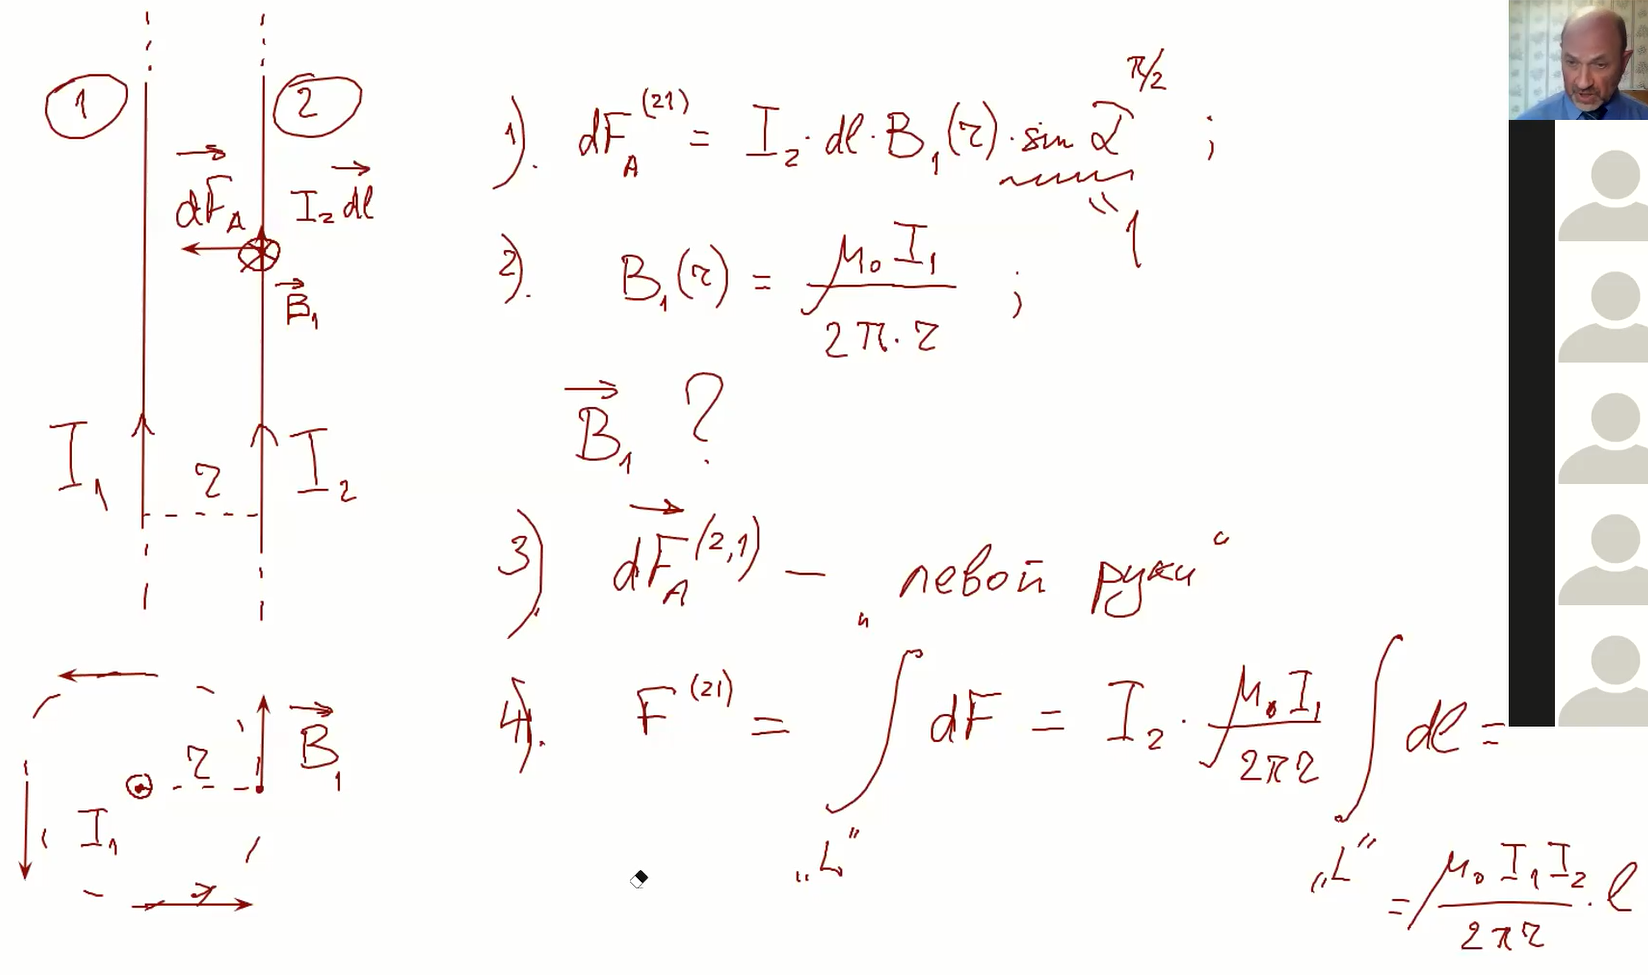 1 2
dF_A I₂dl
B₁
I₁ r I₂
r B₁
I₁
1). dF_A^(21) = I₂·dl·B₁(r)·sin α ; π/2
"1
2). B₁(r) = μ₀I₁ / 2π·r ;
B₁ ?
3). dF_A^(2,1) — „левой руки“
4). F^(21) = ∫ dF = I₂· μ₀I₁ / 2πr ∫ dl =
„L" „L"
= μ₀I₁I₂ / 2πr · l